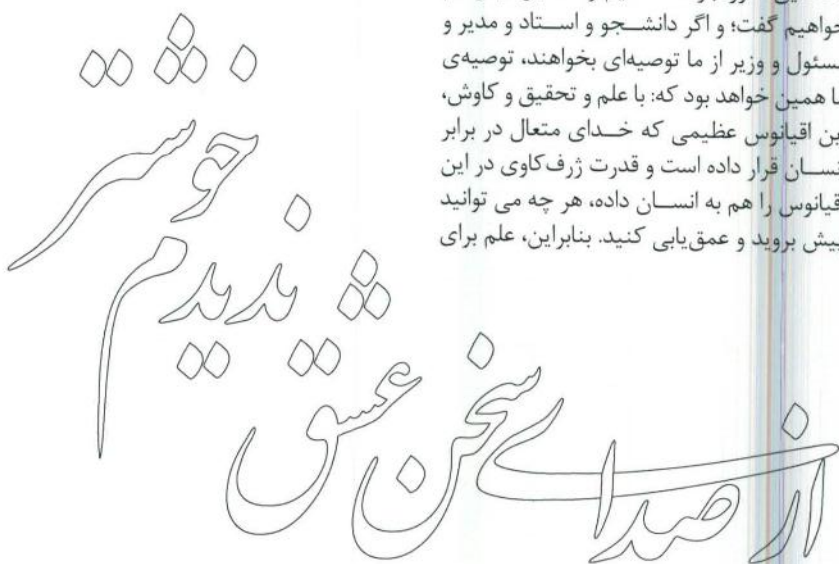 خواهیم گفت؛ و اگر دانشجو و استاد و مدیر و
مسئول و وزیر از ما توصیه‌ای بخواهند، توصیه‌ی
ما همین خواهد بود که: با علم و تحقیق و کاوش،
این اقیانوس عظیمی که خدای متعال در برابر
انسان قرار داده است و قدرت ژرف‌کاوی در این
اقیانوس را هم به انسان داده، هر چه می توانید
پیش بروید و عمق‌یابی کنید. بنابراین، علم برای
از صدای سخن عشق ندیدم خوشتر